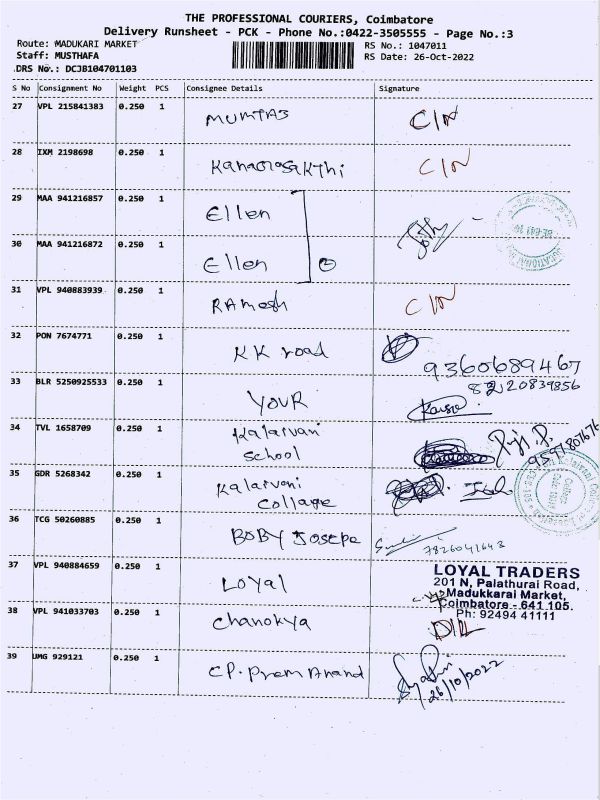 THE PROFESSIONAL COURIERS, Coimbatore
Delivery Runsheet - PCK - Phone No.:0422-3505555 - Page No.:3
Route: MADUKARI MARKET
RS No.: 1047011
Staff: MUSTHAFA
RS Date: 26-Oct-2022
DRS No.: DCJB104701103
S No Consignment No Weight PCS Consignee Details Signature
27 VPL 215841383 0.250 1 MUMTAS C/N
28 IXM 2198698 0.250 1 C/N
29 MAA 941216857 0.250 1 Ellen
30 MAA 941216872 0.250 1 Ellen 2
31 VPL 940883939 0.250 1 RAmesh C/N
32 PON 7674771 0.250 1 KK road 9360689467
33 BLR 5250925533 0.250 1 YOUR
34 TVL 1658709 0.250 1 Kalaivani
School
35 GDR 5268342 0.250 1 Kalaivani
Collage
36 TCG 50260885 0.250 1 BOBY Josepe 7826041648
37 VPL 940884659 0.250 1 LOYAL
LOYAL TRADERS
201 N, Palathurai Road,
Madukkarai Market,
Coimbatore - 641 105.
Ph: 92494 41111
38 VPL 941033703 0.250 1 Chanokya D/L
39 UMG 929121 0.250 1 CP. Prem Anand
26/10/2022